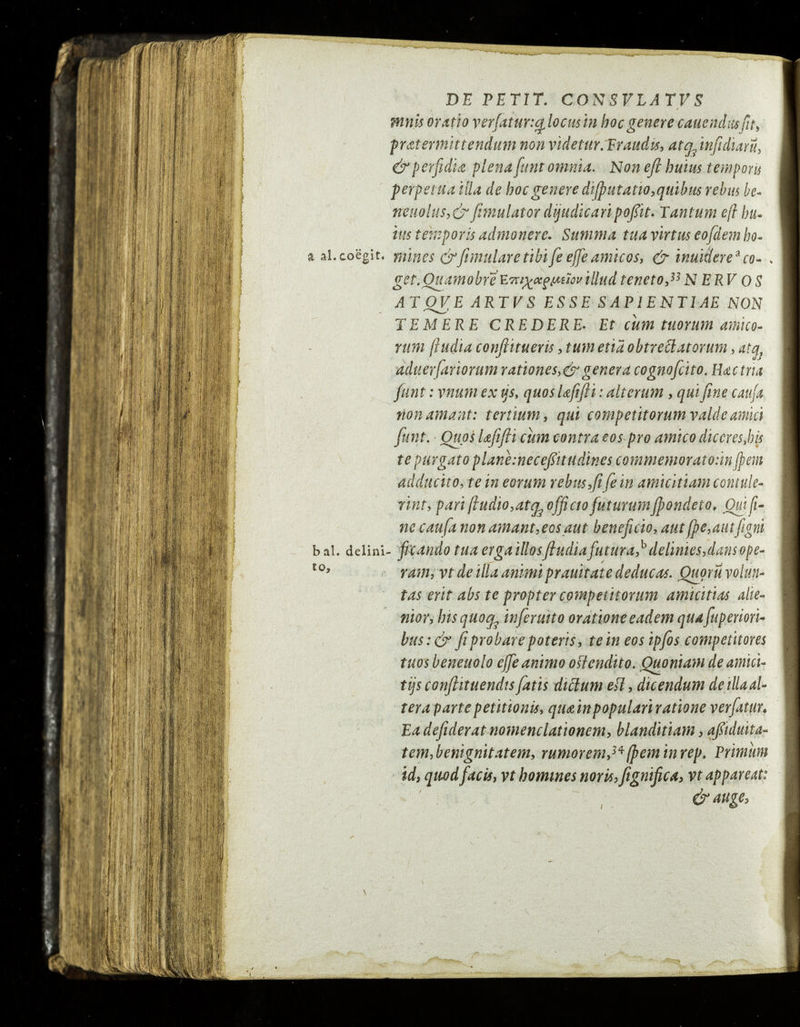 DE PETIT. CONSVLATVS
mnis oratio versatur:q̃ locus in hoc genere cauendus sit,
prætermittendum non videtur. Fraudis, atq; insidiarũ,
& perfidiæ plena sunt omnia. Non est huius temporis
perpetua illa de hoc genere disputatio, quibus rebus be-
neuolus, & simulator dijudicari possit. Tantum est hu-
ius temporis admonere. Summa tua virtus eosdem ho-
a al. coëgit. mines & simulare tibi se esse amicos, & inuidere ᵃ co-
get. Quamobrẽ Ἐπιχαρμεῖον illud teneto,³³ NERVOS
ATQVE ARTVS ESSE SAPIENTIAE NON
TEMERE CREDERE. Et cùm tuorum amico-
rum studia constitueris, tum etiã obtrectatorum, atq;
aduersariorum rationes, & genera cognoscito. Hæc tria
sunt: vnum ex ijs, quos læsisti: alterum, qui sine causa
non amant: tertium, qui competitorum valde amici
sunt. Quos læsisti cùm contra eos pro amico diceres, his
te purgato planè: necessitudines commemorato: in spem
adducito, te in eorum rebus, si se in amicitiam contule-
rint, pari studio, atq; officio futurum spondeto. Qui si-
ne causa non amant, eos aut beneficio, aut spe, aut signi
b al. delini- ficando tua erga illos studia futura, ᵇ delinies, dans ope-
to, ram, vt de illa animi prauitate deducas. Quorũ volun-
tas erit abs te propter competitorum amicitias alie-
nior, his quoq; inseruito oratione eadem qua superiori-
bus: & si probare poteris, te in eos ipsos competitores
tuos beneuolo esse animo ostendito. Quoniam de amici-
tijs constituendis satis dictum est, dicendum de illa al-
tera parte petitionis, quæ in populari ratione versatur.
Ea desiderat nomenclationem, blanditiam, assiduita-
tem, benignitatem, rumorem,³⁴ spem in rep. Primùm
id, quod facis, vt homines noris, significa, vt appareat:
& auge,